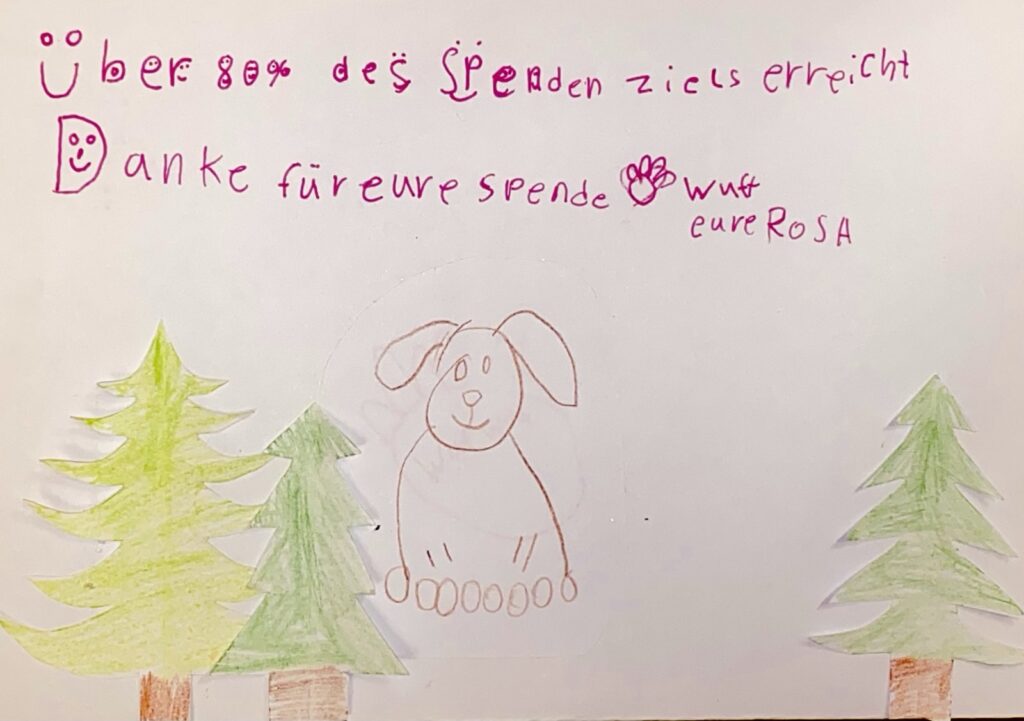 Über 80% des Spenden ziels erreicht
Danke für eure spende Wuff
eure ROSA